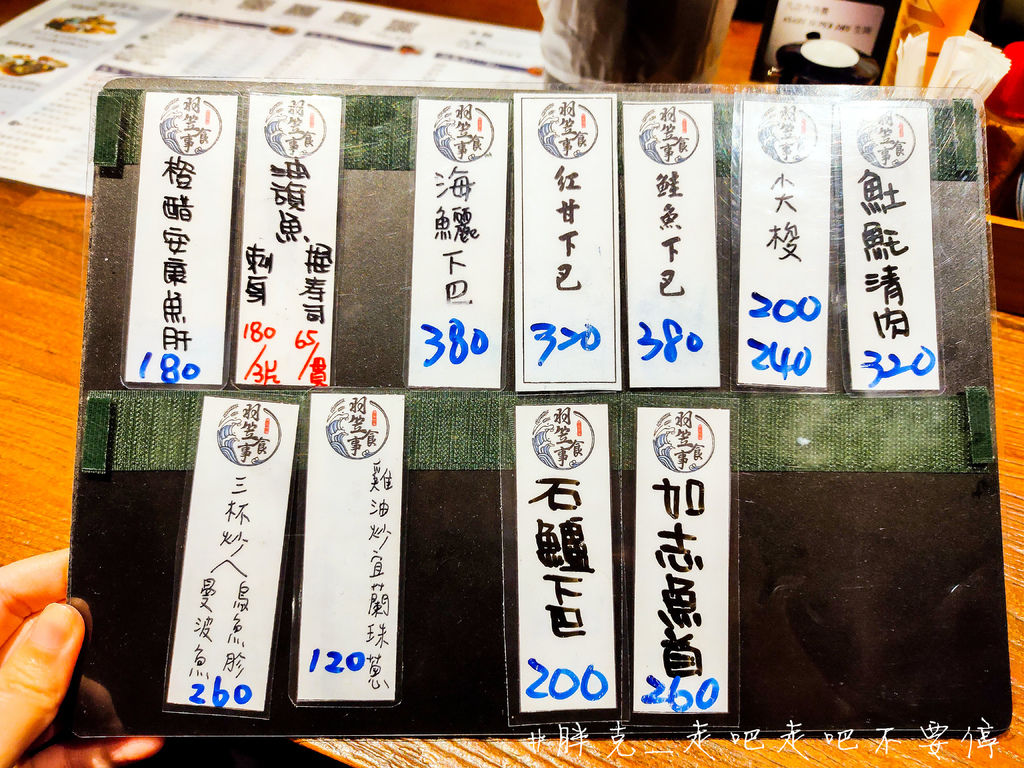 羽笠食事
橙醋安康魚肝
180
羽笠食事
油頭魚
握壽司
65/貫
刺身
180/3片
羽笠食事
海鱺下巴
380
羽笠食事
紅甘下巴
320
羽笠食事
鮭魚下巴
380
羽笠食事
小大
梭
200
240
羽笠食事
魟魠清肉
320
羽笠食事
三杯炒
烏魚胗
曼波魚
260
羽笠食事
雞油炒宜蘭珠蔥
120
羽笠食事
石鱸下巴
200
羽笠食事
如志魚首
260
#胖克_走吧走吧不要停